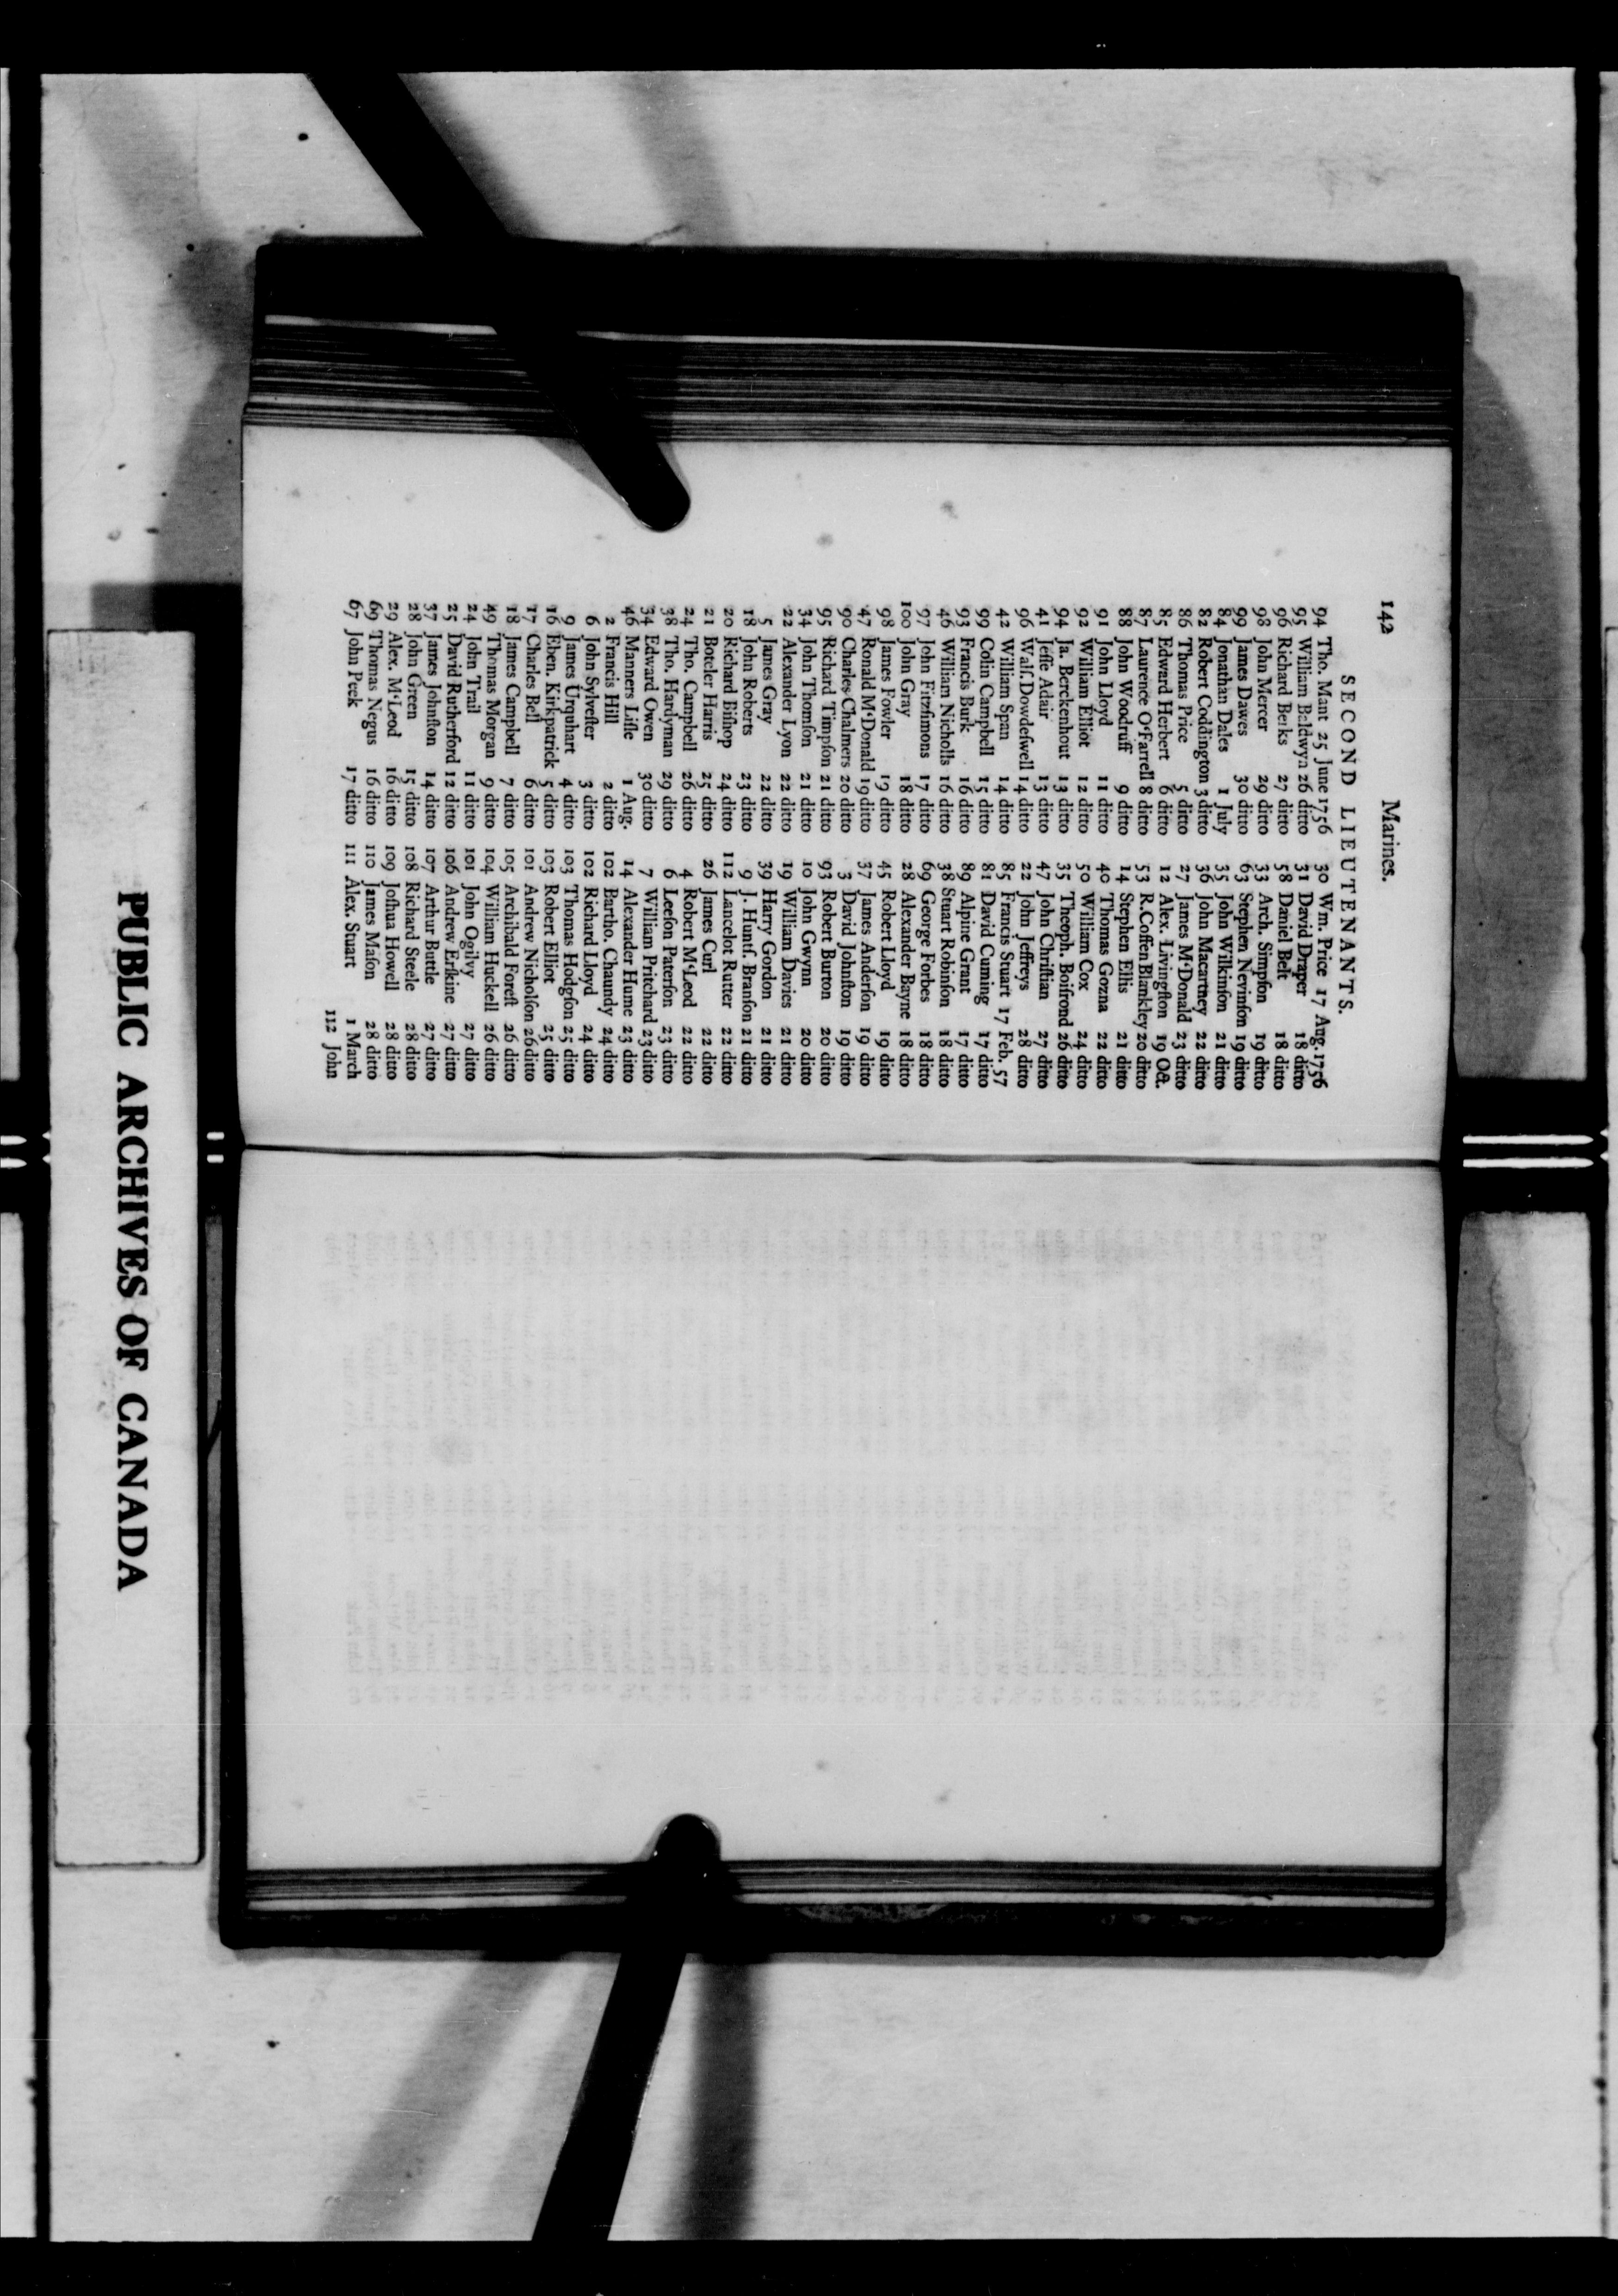 142 Marines.
SECOND LIEUTENANTS.
94 Tho. Mant 25 June 1756
95 William Baldwyn 26 ditto
96 Richard Berks 27 ditto
98 John Mercer 29 ditto
99 James Dawes 30 ditto
84 Jonathan Dales 1 July
82 Robert Coddington 3 ditto
86 Thomas Price 5 ditto
85 Edward Herbert 6 ditto
87 Laurence O'Farrell 8 ditto
88 John Woodruff 9 ditto
91 John Lloyd 11 ditto
92 William Elliot 12 ditto
94 Ja. Berckenhout 13 ditto
41 Jeſſe Adair 13 ditto
96 Walſ. Dowdeſwell 14 ditto
42 William Span 14 ditto
99 Colin Campbell 15 ditto
93 Francis Burk 16 ditto
46 William Nicholls 16 ditto
97 John Fitzſimons 17 ditto
100 John Gray 18 ditto
98 James Fowler 19 ditto
47 Ronald M'Donald 19 ditto
90 Charles Chalmers 20 ditto
95 Richard Timpſon 21 ditto
34 John Thomſon 21 ditto
22 Alexander Lyon 22 ditto
5 James Gray 22 ditto
18 John Roberts 23 ditto
20 Richard Biſhop 24 ditto
21 Boteler Harris 25 ditto
24 Tho. Campbell 26 ditto
38 Tho. Hardyman 29 ditto
34 Edward Owen 30 ditto
46 Manners Liſle 1 Aug.
2 Francis Hill 2 ditto
6 John Sylveſter 3 ditto
9 James Urquhart 4 ditto
16 Eben. Kirkpatrick 5 ditto
17 Charles Bell 6 ditto
18 James Campbell 7 ditto
49 Thomas Morgan 9 ditto
24 John Trail 11 ditto
25 David Rutherford 12 ditto
37 James Johnſton 14 ditto
28 John Green 15 ditto
29 Alex. M'Leod 16 ditto
69 Thomas Negus 16 ditto
67 John Peek 17 ditto
30 Wm. Price 17 Aug. 1756
31 David Draper 18 ditto
58 Daniel Belt 18 ditto
33 Arch. Simpſon 19 ditto
63 Stephen Nevinſon 19 ditto
35 John Wilkinſon 21 ditto
36 John Macartney 22 ditto
27 James M'Donald 23 ditto
12 Alex. Livingſton 19 Oct.
53 R. Coffen Blankley 20 ditto
14 Stephen Ellis 21 ditto
40 Thomas Gozna 22 ditto
50 William Cox 24 ditto
35 Theoph. Boiſrond 26 ditto
47 John Chriſtian 27 ditto
22 John Jeffreys 28 ditto
85 Francis Stuart 17 Feb. 57
81 David Cuming 17 ditto
89 Alpine Grant 17 ditto
38 Stuart Robinſon 18 ditto
69 George Forbes 18 ditto
28 Alexander Bayne 18 ditto
45 Robert Lloyd 19 ditto
37 James Anderſon 19 ditto
3 David Johnſton 19 ditto
93 Robert Burton 20 ditto
10 John Gwynn 20 ditto
19 William Davies 21 ditto
39 Harry Gordon 21 ditto
9 J. Huntſ. Branſon 21 ditto
112 Lancelot Rutter 22 ditto
26 James Curl 22 ditto
4 Robert M'Leod 22 ditto
6 Leeſon Paterſon 23 ditto
7 William Pritchard 23 ditto
14 Alexander Hume 23 ditto
102 Bartho. Chaundy 24 ditto
102 Richard Lloyd 24 ditto
103 Thomas Hodgſon 25 ditto
103 Robert Elliot 25 ditto
101 Andrew Nicholſon 26 ditto
105 Archibald Foreſt 26 ditto
104 William Huckell 26 ditto
101 John Ogilvy 27 ditto
106 Andrew Erſkine 27 ditto
107 Arthur Buttle 27 ditto
108 Richard Steele 28 ditto
109 Joſhua Howell 28 ditto
110 James Maſon 28 ditto
111 Alex. Stuart 1 March
112 John
PUBLIC ARCHIVES OF CANADA